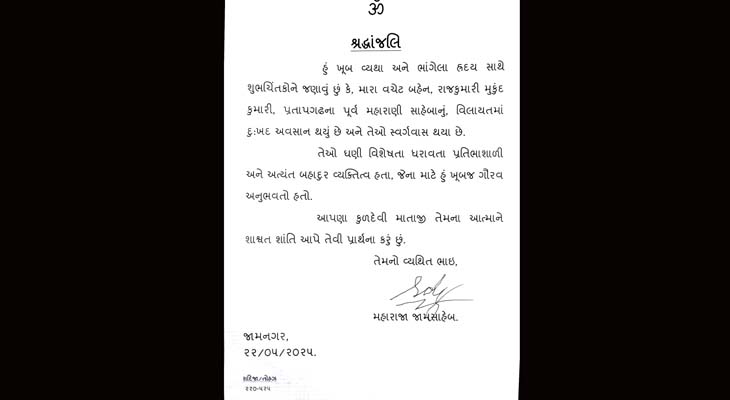 ૐ
શ્રદ્ધાંજલિ
હું ખૂબ વ્યથા અને ભાંગેલા હ્રદય સાથે
શુભચિંતકોને જણાવું છું કે, મારા વચેટ બહેન, રાજકુમારી મુકુંદ
કુમારી, પ્રતાપગઢના પૂર્વ મહારાણી સાહેબાનું, વિલાયતમાં
દુ:ખદ અવસાન થયું છે અને તેઓ સ્વર્ગવાસ થયા છે.
તેઓ ઘણી વિશેષતા ધરાવતા પ્રતિભાશાળી
અને અત્યંત બહાદુર વ્યક્તિત્વ હતા, જેના માટે હું ખૂબજ ગૌરવ
અનુભવતો હતો.
આપણા કુળદેવી માતાજી તેમના આત્માને
શાશ્વત શાંતિ આપે તેવી પ્રાર્થના કરું છું.
તેમનો વ્યથિત ભાઇ,
મહારાજા જામસાહેબ.
જામનગર,
૨૨/૦૫/૨૦૨૫.
૨૨૦-૫૨૫